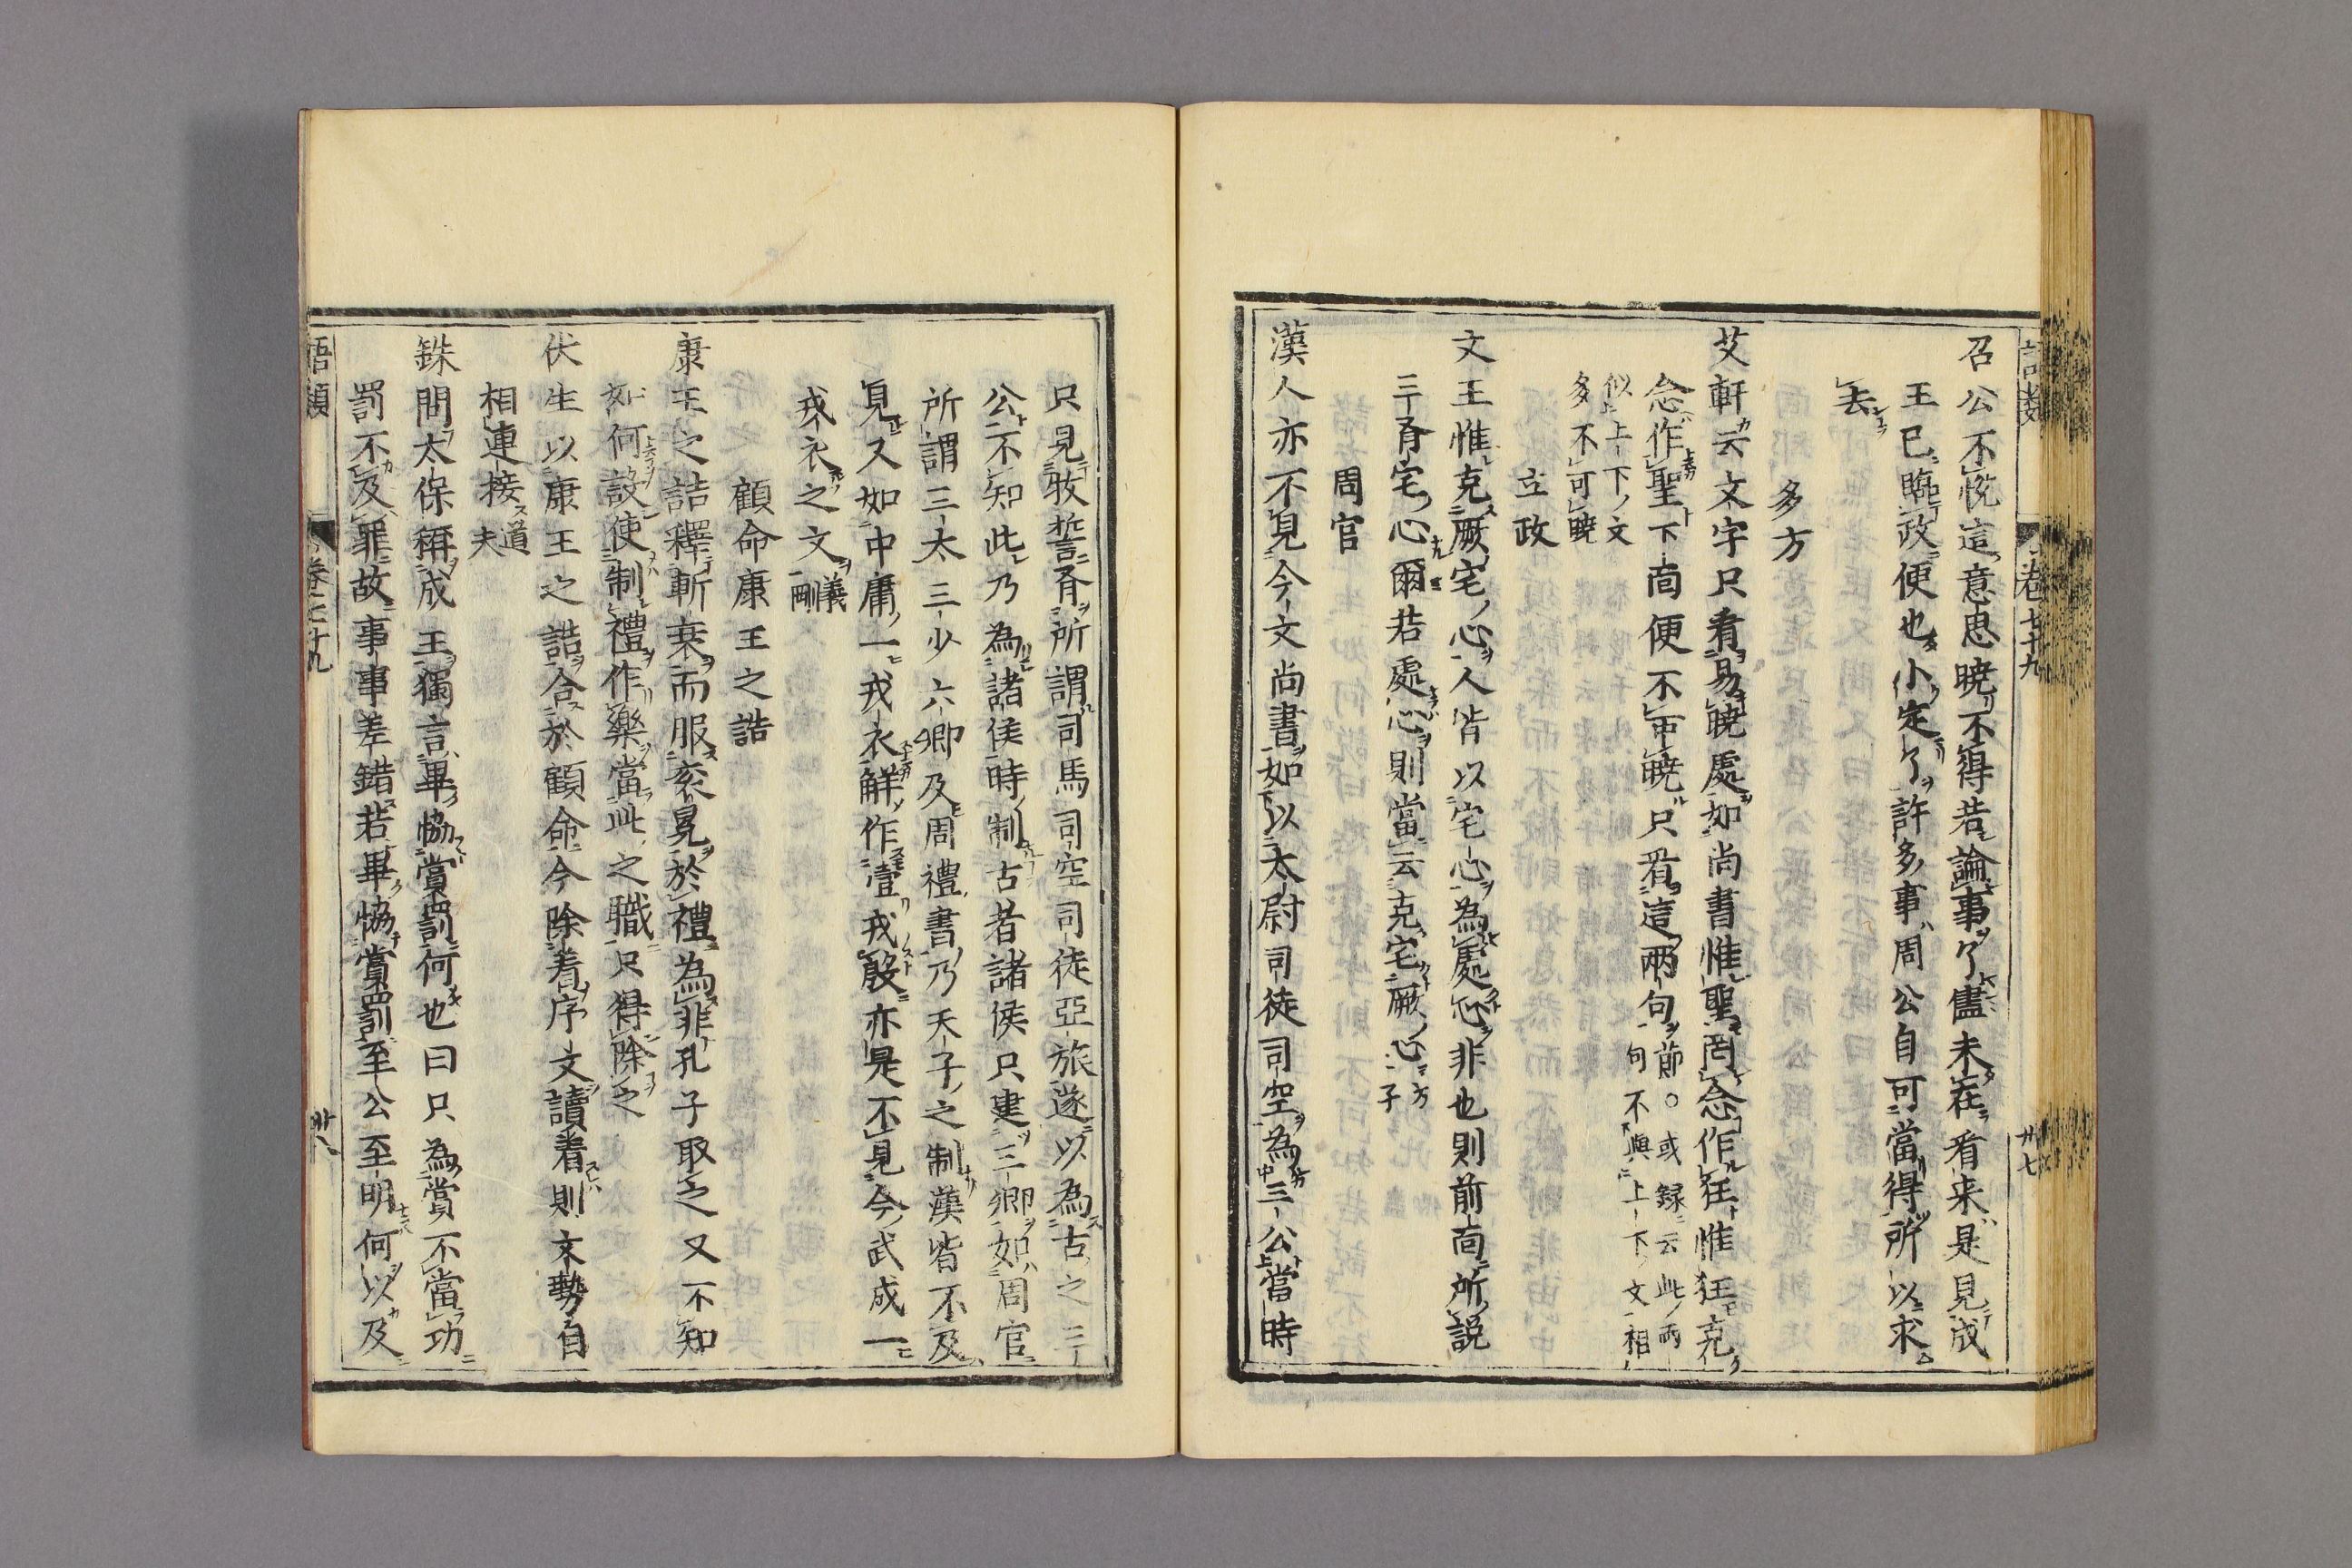 語類 卷七十九 廿七
召公不悅這意思曉不得若論事了儘未在看来是見成
王已臨政便也小定了許多事周公自可當得所以求
去
多方
艾軒云文字只看易曉處如尚書惟聖罔念作狂惟狂克
念作聖下面便不可曉只看這兩句節○或録云此兩句不與上下文相
似上下文多不可曉
立政
文王惟克厥宅心人皆以宅心為處心非也則前面所説
三有宅心爾若處心則當云克宅厥心方子
周官
漢人亦不見今文尚書如以太尉司徒司空為三公當時
只見牧誓有所謂司馬司空司徒亞旅遂以為古之三
公不知此乃為諸侯時制古者諸侯只建三卿如周官
所謂三太三少六卿及周禮書乃天子之制漢皆不及
見又如中庸一戎衣解作壹戎殷亦是不見今武成一
戎衣之文義剛
顧命康王之誥
康王之誥釋斬衰而服衮冕於禮為非孔子取之又不知
如何設使制禮作樂當此之職只得除之
伏生以康王之誥合於顧命今除着序文讀着則文勢自
相連接道夫
銖問太保稱成王獨言畢協賞罰何也曰只為賞不當功
罰不及罪故事事差錯若畢協賞罰至公至明何以及
語類 卷七十九 廿八